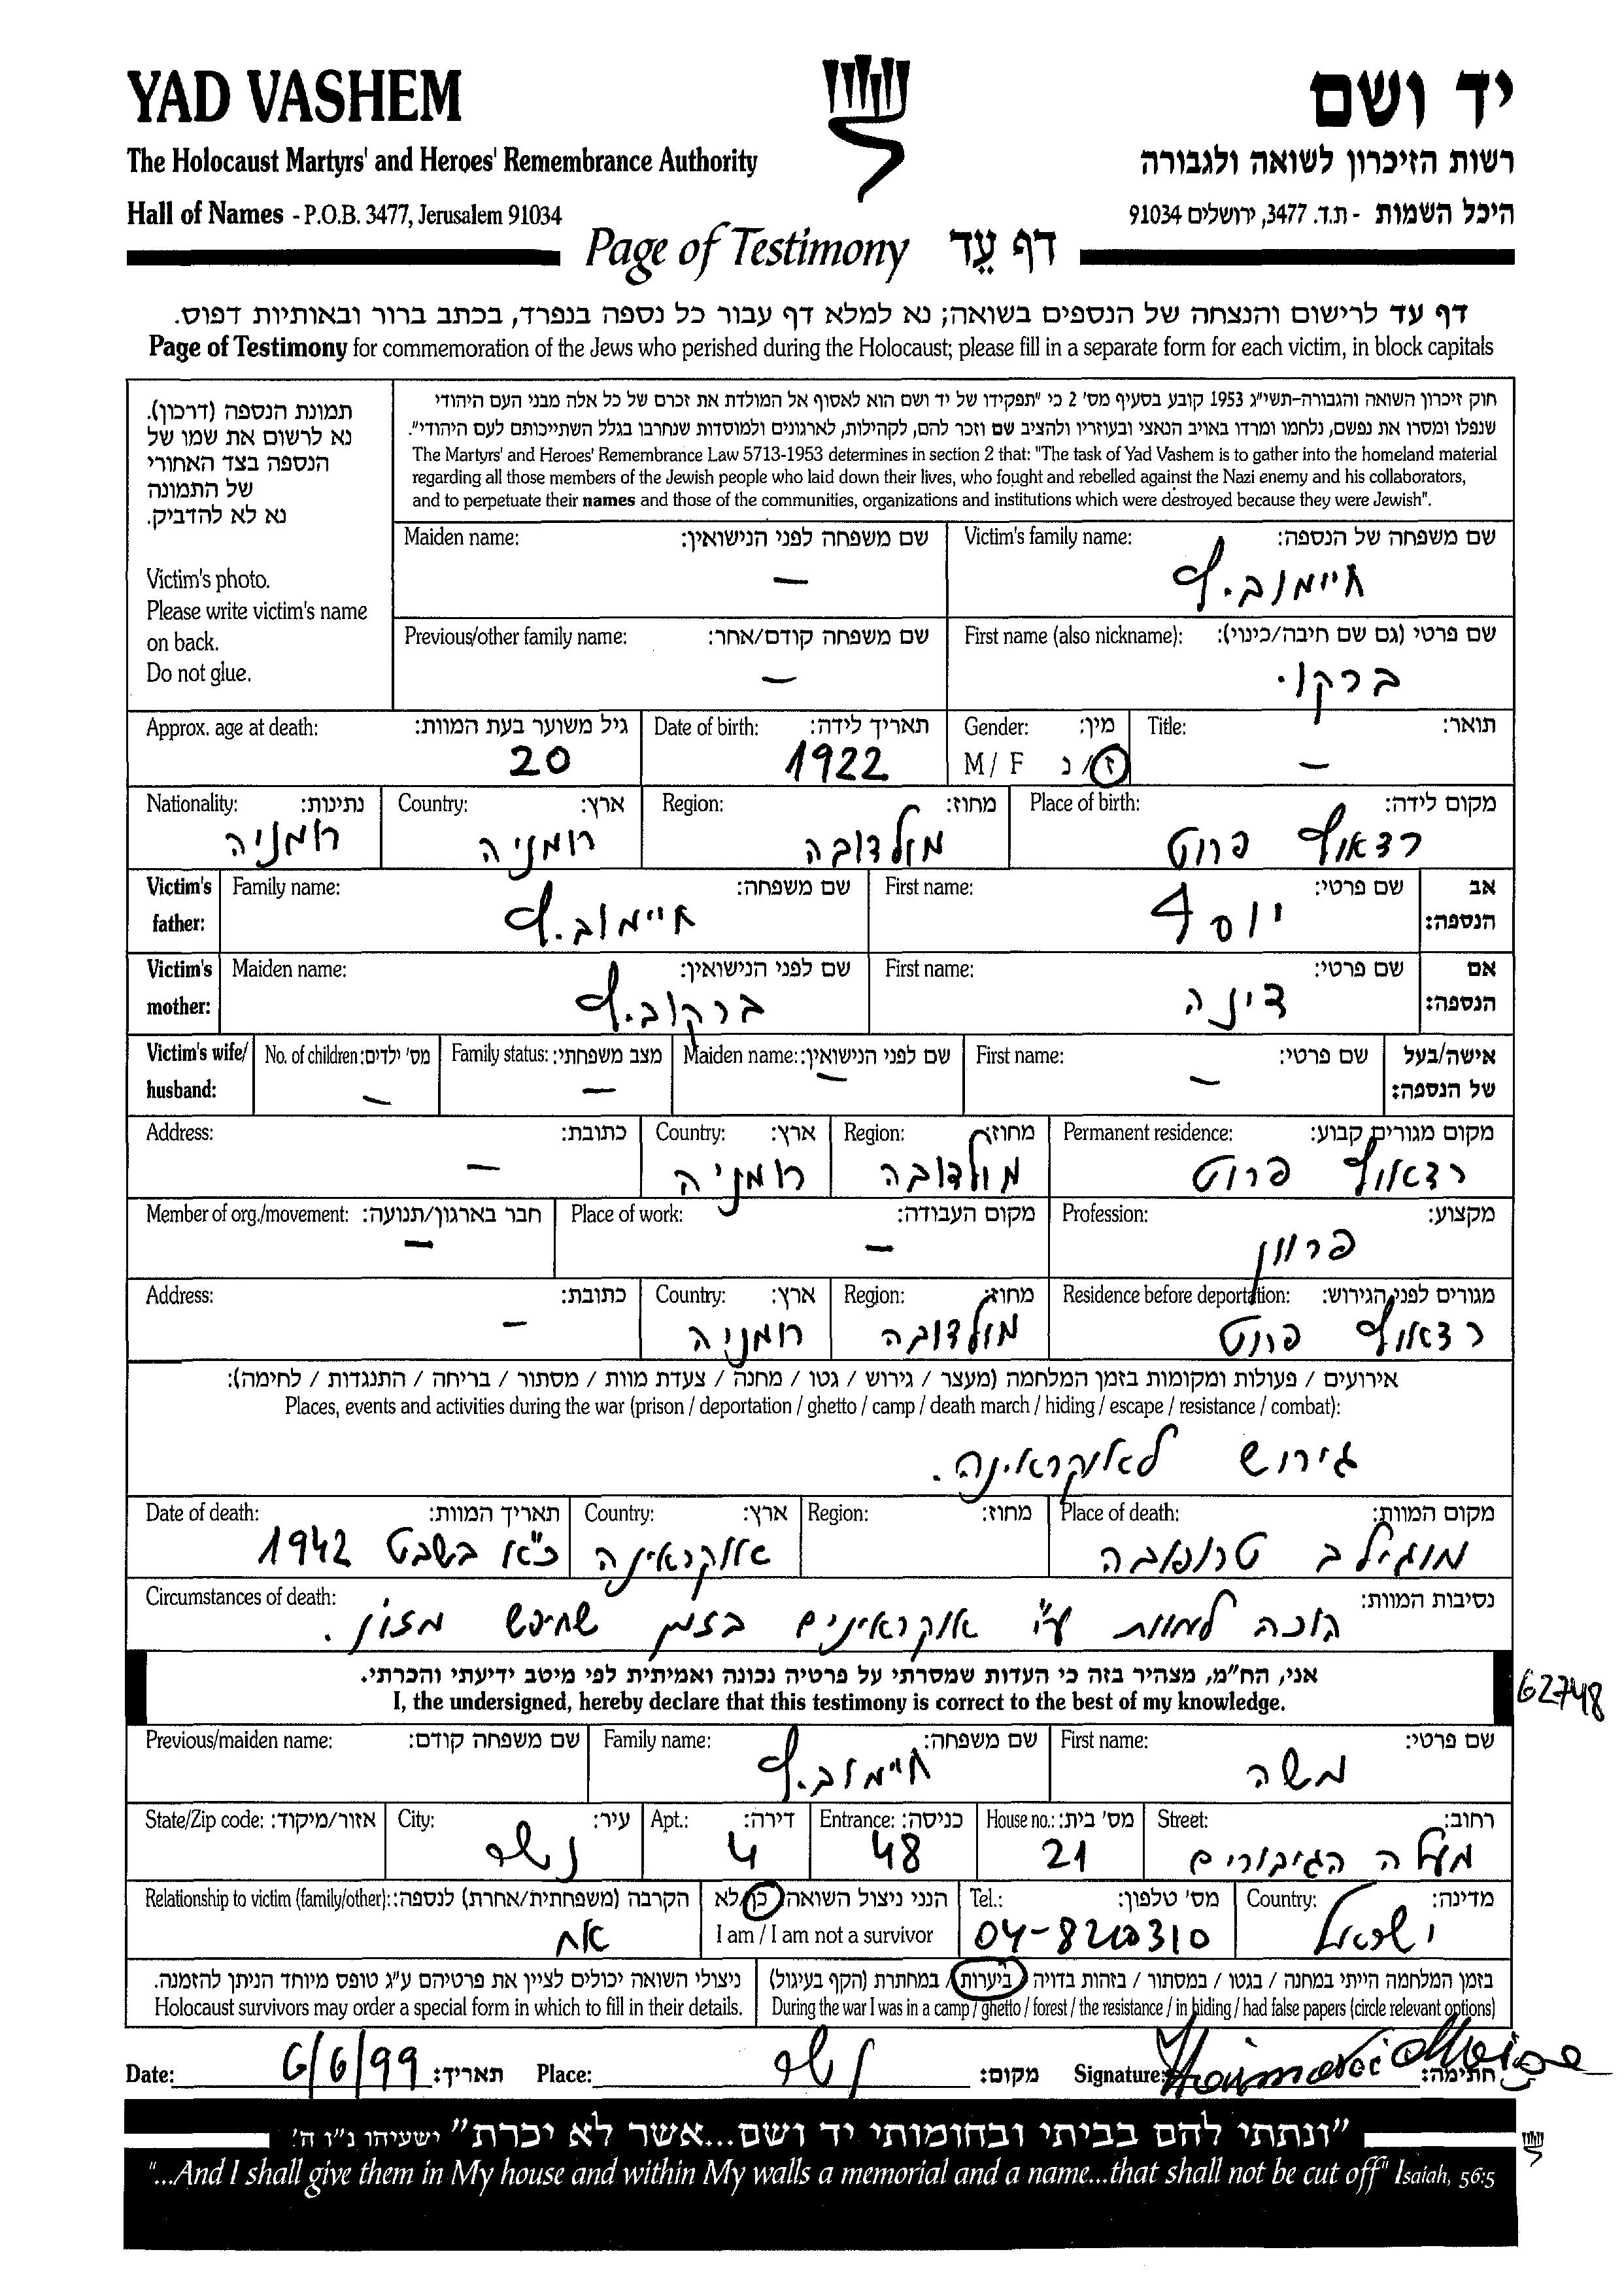 YAD VASHEM
יד ושם
The Holocaust Martyrs' and Heroes' Remembrance Authority
רשות הזיכרון לשואה ולגבורה
Hall of Names - P.O.B. 3477, Jerusalem 91034
היכל השמות - ת.ד. 3477, ירושלים 91034
Page of Testimony דף עֵד
דף עד לרישום והנצחה של הנספים בשואה; נא למלא דף עבור כל נספה בנפרד, בכתב ברור ובאותיות דפוס.
Page of Testimony for commemoration of the Jews who perished during the Holocaust; please fill in a separate form for each victim, in block capitals
תמונת הנספה (דרכון).
נא לרשום את שמו של
הנספה בצד האחורי
של התמונה
נא לא להדביק.
Victim's photo.
Please write victim's name
on back.
Do not glue.
חוק זיכרון השואה והגבורה-תשי"ג 1953 קובע בסעיף מס' 2 כי "תפקידו של יד ושם הוא לאסוף אל המולדת את זכרם של כל אלה מבני העם היהודי
שנפלו ומסרו את נפשם, נלחמו ומרדו באויב הנאצי ובעוזריו ולהציב שם וזכר להם, לקהילות, לארגונים ולמוסדות שנחרבו בגלל השתייכותם לעם היהודי".
The Martyrs' and Heroes' Remembrance Law 5713-1953 determines in section 2 that: "The task of Yad Vashem is to gather into the homeland material
regarding all those members of the Jewish people who laid down their lives, who fought and rebelled against the Nazi enemy and his collaborators,
and to perpetuate their names and those of the communities, organizations and institutions which were destroyed because they were Jewish".
Victim's family name: שם משפחה של הנספה:
חיימוב.ל
Maiden name: שם משפחה לפני הנישואין:
–
First name (also nickname): שם פרטי (גם שם חיבה/כינוי):
ברקו.
Previous/other family name: שם משפחה קודם/אחר:
–
Title: תואר:
–
Gender: מין:
M / F ז / נ
Date of birth: תאריך לידה:
1922
Approx. age at death: גיל משוער בעת המוות:
20
Place of birth: מקום לידה:
רדאוץ פרוט
Region: מחוז:
מולדובה
Country: ארץ:
רומניה
Nationality: נתינות:
רומניה
Victim's father: אב הנספה:
First name: שם פרטי:
יוסף
Family name: שם משפחה:
חיימוב.ל
Victim's mother: אם הנספה:
First name: שם פרטי:
דינה
Maiden name: שם לפני הנישואין:
ברקוב.ל
Victim's wife/ husband: אישה/בעל של הנספה:
First name: שם פרטי:
–
Maiden name: שם לפני הנישואין:
–
Family status: מצב משפחתי:
–
No. of children: מס' ילדים:
–
Permanent residence: מקום מגורים קבוע:
רדאוץ פרוט
Region: מחוז:
מולדובה
Country: ארץ:
רומניה
Address: כתובת:
–
Profession: מקצוע:
פרוון
Place of work: מקום העבודה:
–
Member of org./movement: חבר בארגון/תנועה:
–
Residence before deportation: מגורים לפני הגירוש:
רדאוץ פרוט
Region: מחוז:
מולדובה
Country: ארץ:
רומניה
Address: כתובת:
–
אירועים / פעולות ומקומות בזמן המלחמה (מעצר / גירוש / גטו / מחנה / צעדת מוות / מסתור / בריחה / התנגדות / לחימה):
Places, events and activities during the war (prison / deportation / ghetto / camp / death march / hiding / escape / resistance / combat):
גירוש לאוקראינה.
Place of death: מקום המוות:
מוגילב
Region: מחוז:
Country: ארץ:
אוקראינה
Date of death: תאריך המוות:
כ"א בשבט 1942
Circumstances of death: נסיבות המוות:
הוכה למוות ע"י אוקראינים בזמן שחיפש מזון.
אני, הח"מ, מצהיר בזה כי העדות שמסרתי על פרטיה נכונה ואמיתית לפי מיטב ידיעתי והכרתי.
I, the undersigned, hereby declare that this testimony is correct to the best of my knowledge.
62748
First name: שם פרטי:
משה
Family name: שם משפחה:
חיימוב.ל
Previous/maiden name: שם משפחה קודם:
Street: רחוב:
מעלה הגיבורים
House no.: מס' בית:
21
Entrance: כניסה:
48
Apt.: דירה:
4
City: עיר:
נשר
State/Zip code: אזור/מיקוד:
Country: מדינה:
ישראל
Tel.: מס' טלפון:
הנני ניצול השואה כן/לא
I am / I am not a survivor
Relationship to victim (family/other): הקרבה (משפחתית/אחרת) לנספה:
אח
בזמן המלחמה הייתי במחנה / בגטו / במסתור / בזהות בדויה / ביערות / במחתרת (הקף בעיגול)
During the war I was in a camp / ghetto / forest / the resistance / in hiding / had false papers (circle relevant options)
ניצולי השואה יכולים לציין את פרטיהם ע"ג טופס מיוחד הניתן להזמנה.
Holocaust survivors may order a special form in which to fill in their details.
Date: 6/6/99 תאריך: Place: נשר מקום: Signature: Haimovici Moise חתימה:
"ונתתי להם בביתי ובחומותי יד ושם...אשר לא יכרת" ישעיהו נ"ו ה'
"...And I shall give them in My house and within My walls a memorial and a name...that shall not be cut off" Isaiah, 56:5